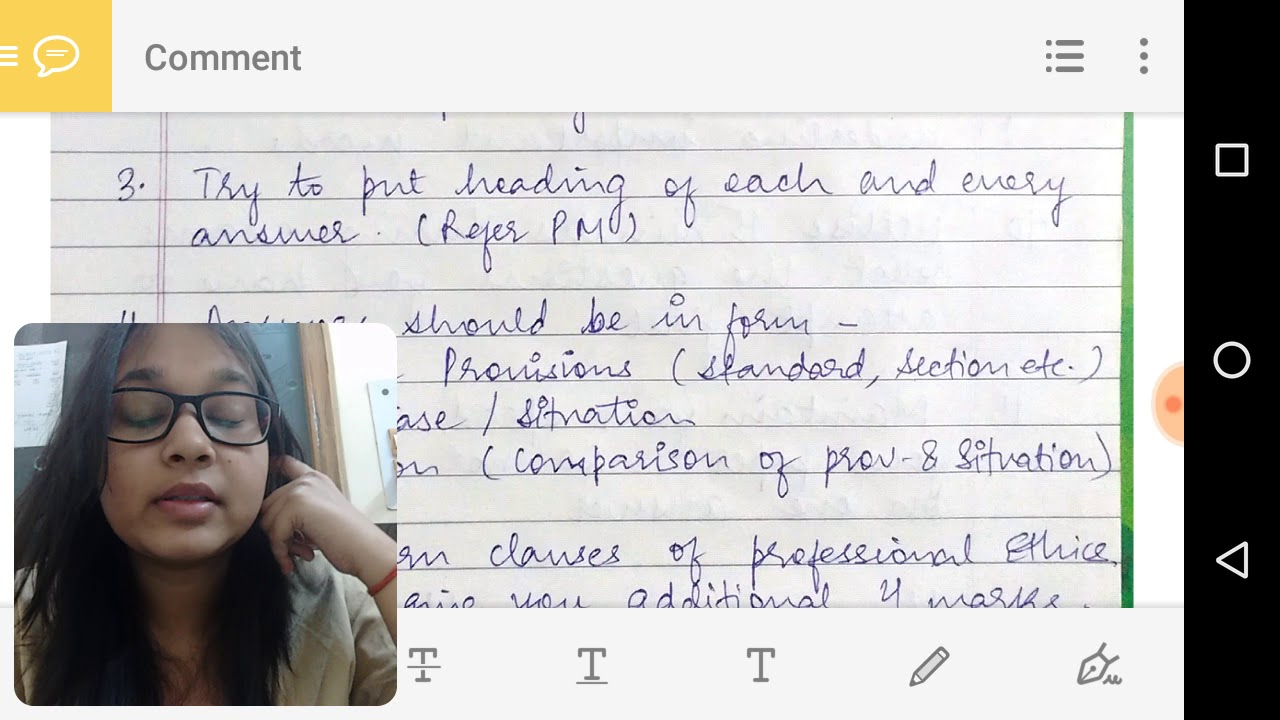 Comment
3. Try to put heading of each and every
answer. (Refer PM)
should be in form -
Provisions (standard, section etc.)
/ Situation
(Comparison of prov. & Situation)
clauses of professional Ethics.
you additional 4 marks.